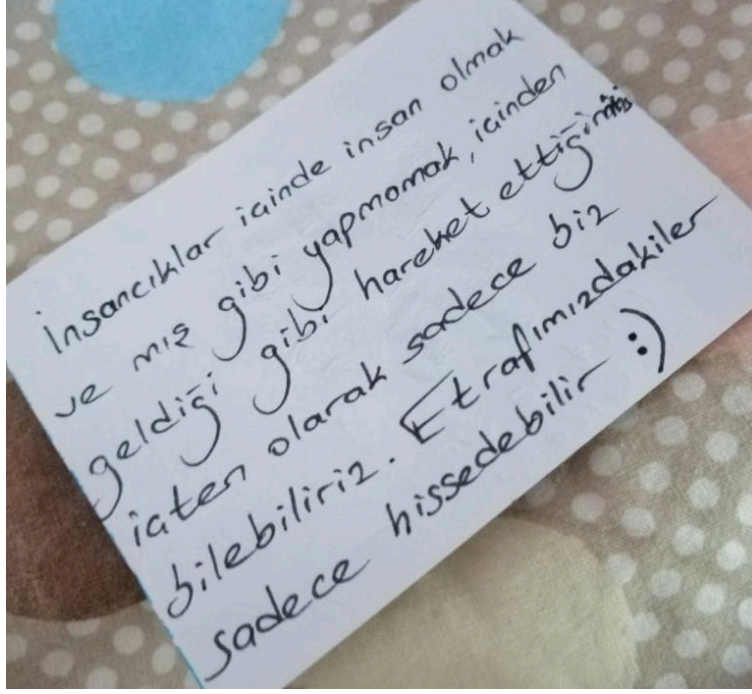 İnsancıklar içinde insan olmak
ve mış gibi yapmamak, içinden
geldiği gibi hareket ettiğimizi
içten olarak sadece biz
bilebiliriz. Etrafımızdakiler
sadece hissedebilir :)